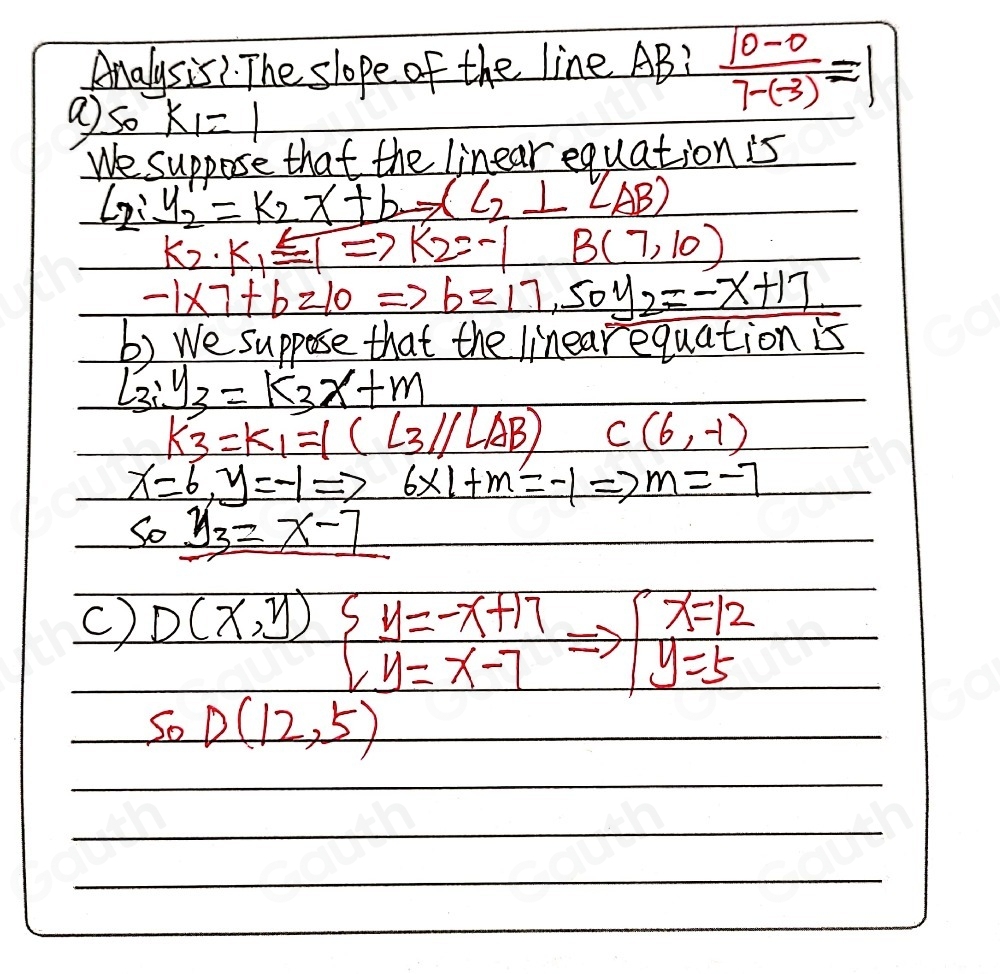 Analysis: The slope of the line AB: \frac{10-0}{7-(-3)}=1
a) So K₁=1
We suppose that the linear equation is
L₂: y₂=K₂x+b → (L₂ ⊥ LAB)
K₂·K₁=-1 => K₂=-1 B(7,10)
-1×7+b=10 => b=17, So y₂=-x+17
b) We suppose that the linear equation is
L₃: y₃=K₃x+m
K₃=K₁=1 (L₃//LAB) C(6,-1)
x=6, y=-1 => 6×1+m=-1 => m=-7
So y₃=x-7
C) D(x,y) { y=-x+17 y=x-7 => { x=12 y=5
So D(12,5)